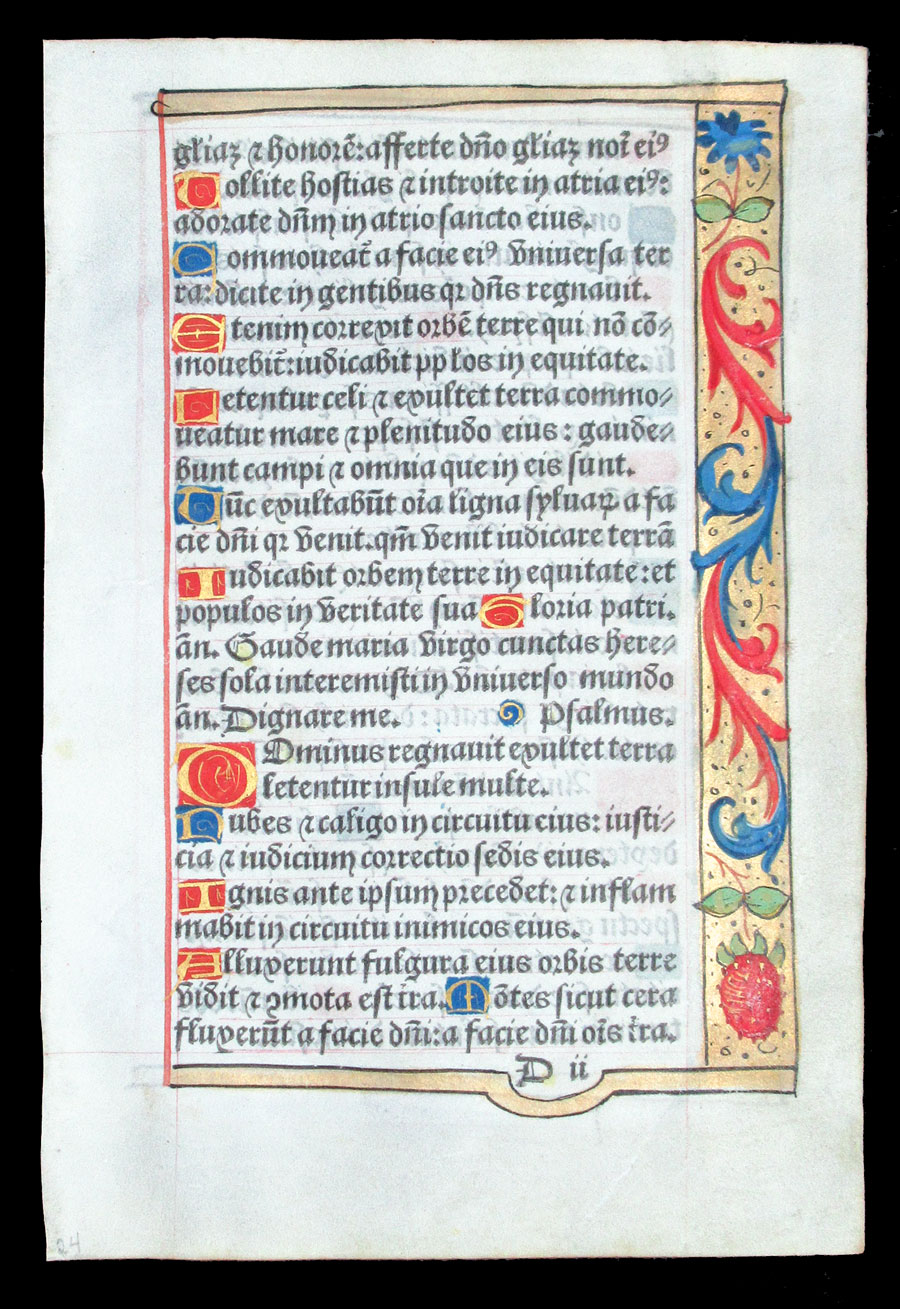 gl̄iaꝫ ⁊ honorē: afferte dn̄o gl̄iaꝫ noī eiꝰ
Tollite hostias ⁊ introite in atria eiꝰ:
adorate dn̄m in atrio sancto eius.
Commoveat̄ a facie eiꝰ vniuersa ter
ra: dicite in gentibus qꝛ dn̄s regnauit.
Etenim correxit orbē terre qui nō cō⸗
mouebit̄: iudicabit ppl̄os in equitate.
Letentur celi ⁊ exultet terra commo⸗
ueatur mare ⁊ plenitudo eius: gaude⸗
bunt campi ⁊ omnia que in eis sunt.
Tūc exultabūt oīa ligna syluaꝝ a fa
cie dn̄i qꝛ venit. qm̄ venit iudicare terrā
Iudicabit orbem terre in equitate: et
populos in veritate sua Gloria patri.
ān. Gaude maria virgo cunctas here⸗
ses sola interemisti in vniuerso mundo
ān. Dignare me. Psalmus.
DOminus regnauit exultet terra
letentur insule multe.
Nubes ⁊ caligo in circuitu eius: iusti⸗
cia ⁊ iudicium correctio sedis eius.
Ignis ante ipsum precedet: ⁊ inflam
mabit in circuitu inimicos eius.
Alluxerunt fulgura eius orbis terre
vidit ⁊ ꝯmota est tr̄a. Mōtes sicut cera
fluxerūt a facie dn̄i: a facie dn̄i oīs tr̄a.
D ii
24